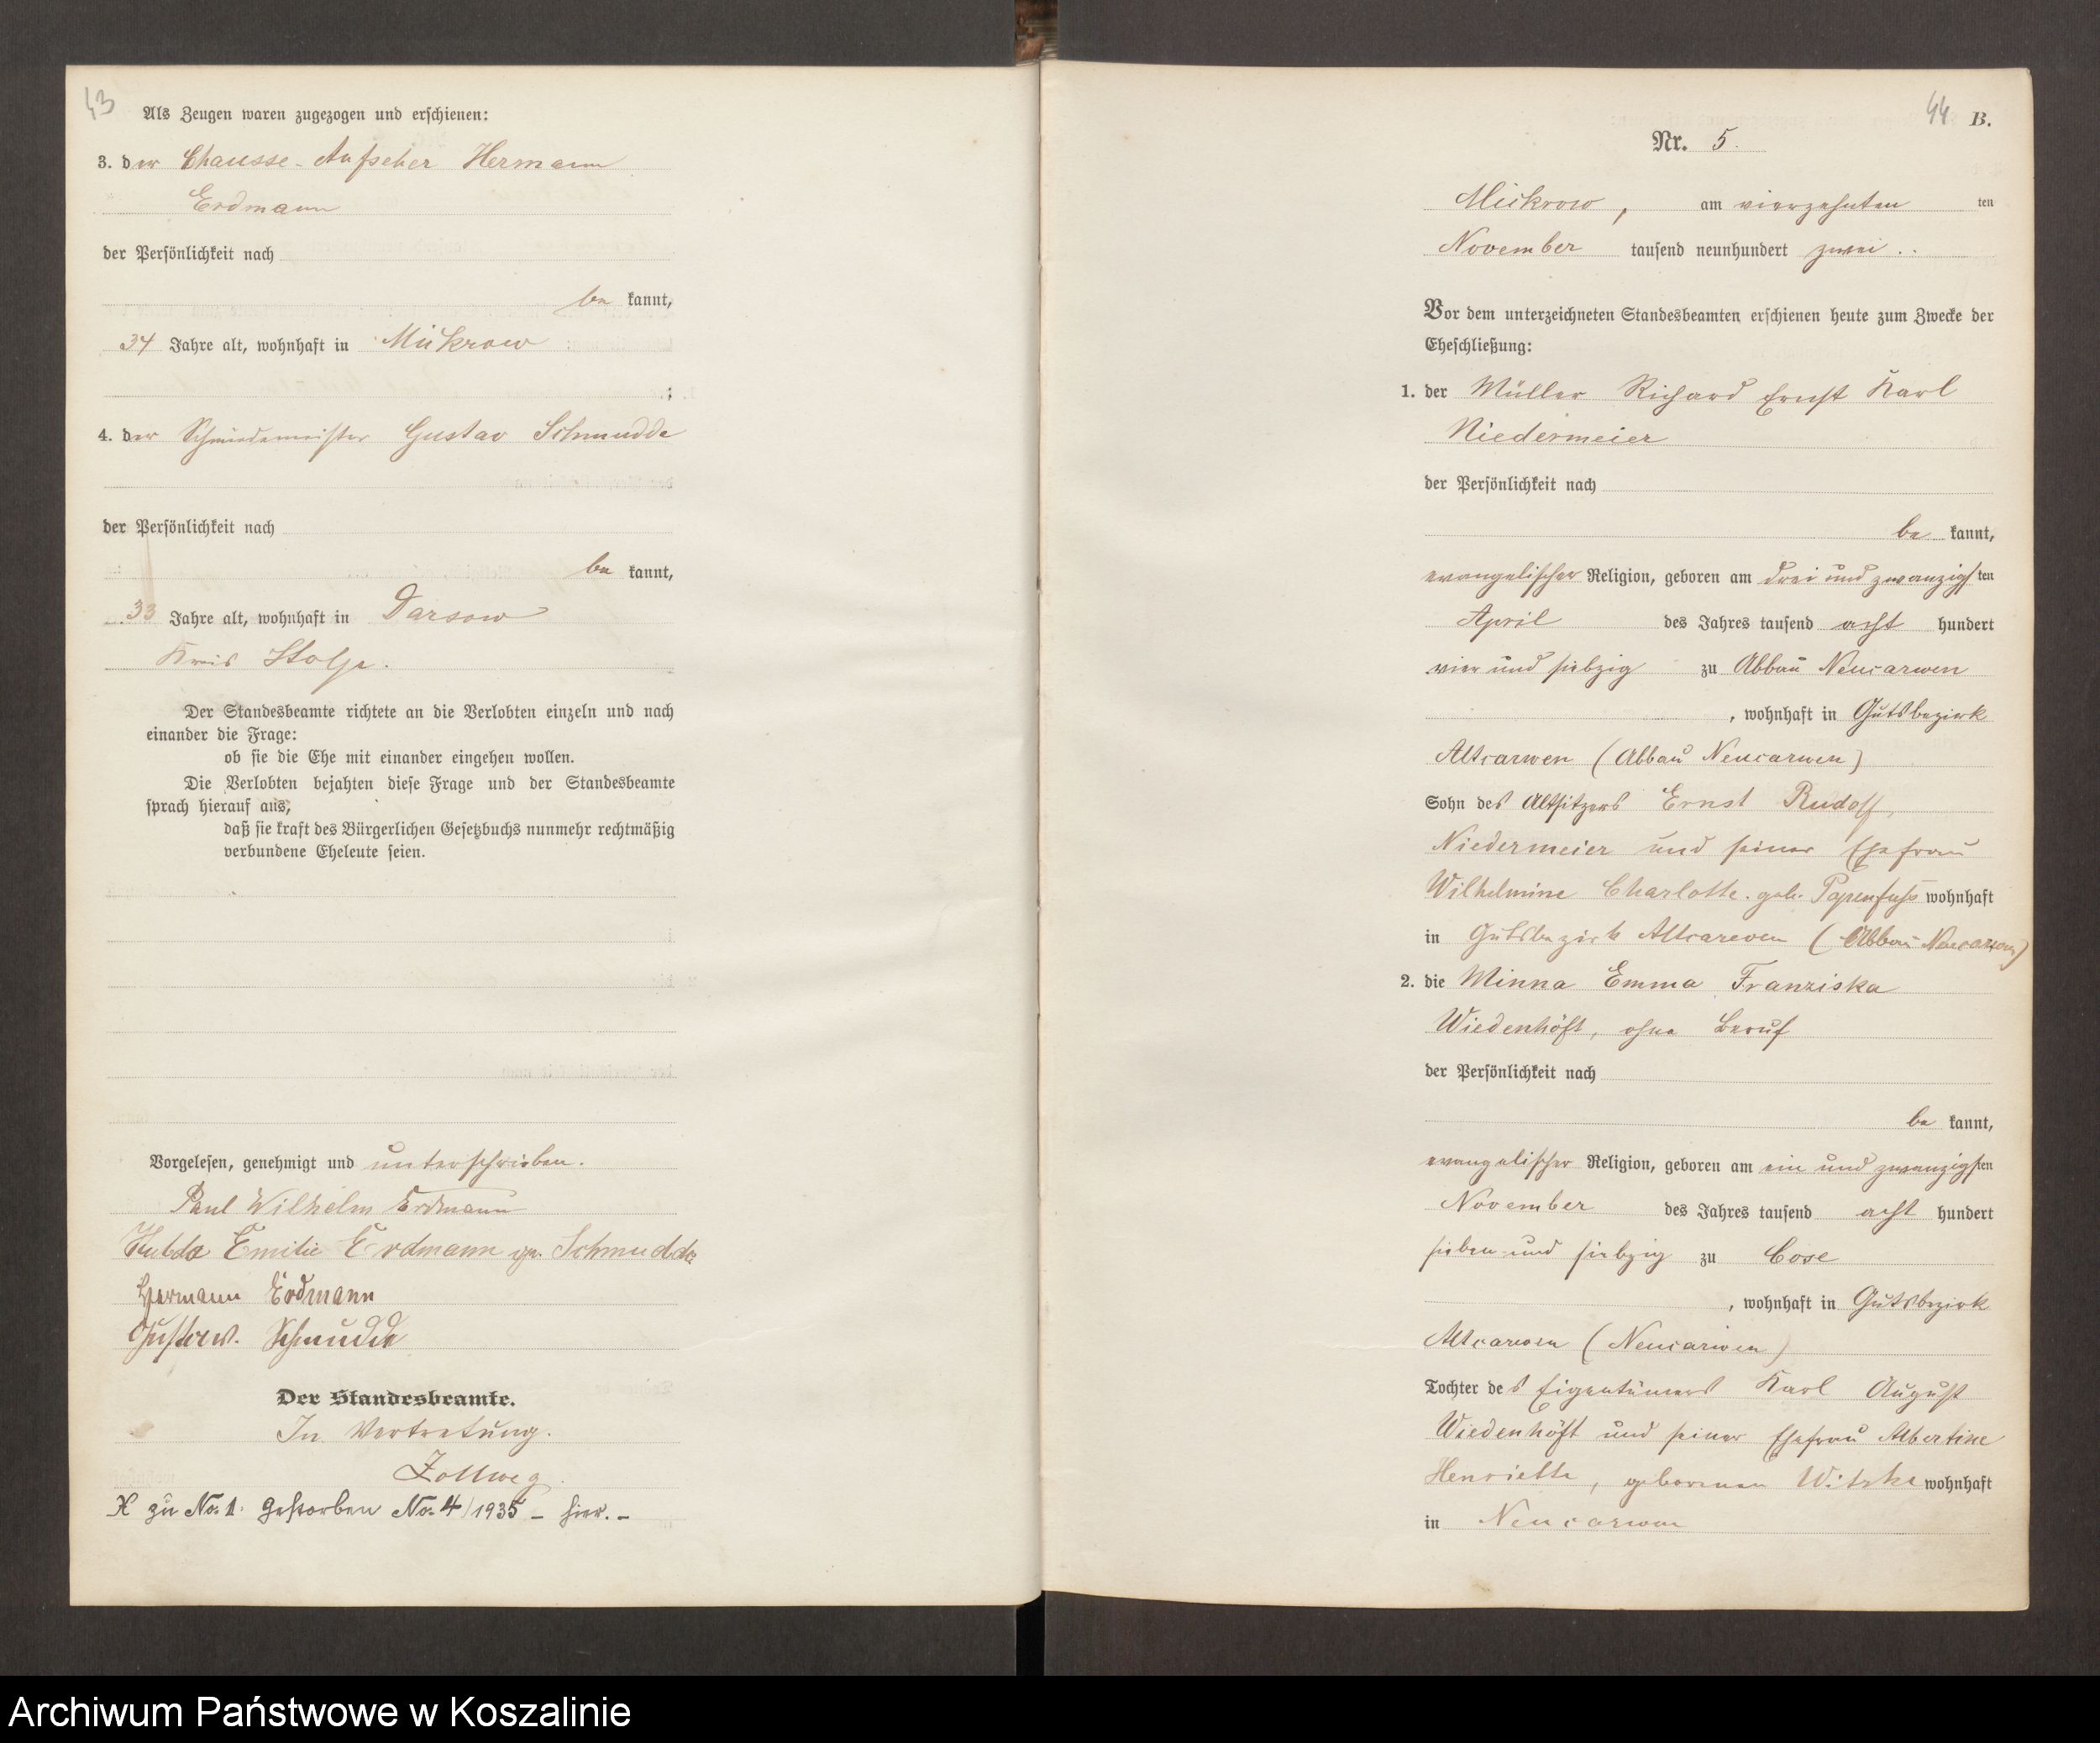 43
Als Zeugen waren zugezogen und erschienen:
3. der Chausse-Aufseher Hermann
Erdmann
der Persönlichkeit nach
be kannt,
34 Jahre alt, wohnhaft in Mickrow
;
4. der Schmiedemeister Gustav Schmudde
der Persönlichkeit nach
be kannt,
33 Jahre alt, wohnhaft in Darsow
Kreis Stolp.
Der Standesbeamte richtete an die Verlobten einzeln und nach
einander die Frage:
ob sie die Ehe mit einander eingehen wollen.
Die Verlobten bejahten diese Frage und der Standesbeamte
sprach hierauf aus,
daß sie kraft des Bürgerlichen Gesetzbuchs nunmehr rechtmäßig
verbundene Eheleute seien.
Vorgelesen, genehmigt und unterschrieben.
Paul Wilhelm Erdmann
Hulda Emilie Erdmann ge. Schmudde
Hermann Erdmann
Gustav. Schmudde
Der Standesbeamte.
In Vertretung.
Zollweg.
X zu No. 1. gestorben No. 4/1935 – hier. –
44 B.
Nr. 5.
Mickrow, am vierzehnten ten
November tausend neunhundert zwei..
Vor dem unterzeichneten Standesbeamten erschienen heute zum Zwecke der
Eheschließung:
1. der Müller Richard Ernst Karl
Niedermeier
der Persönlichkeit nach
be kannt,
evangelischer Religion, geboren am drei und zwanzigsten
April des Jahres tausend acht hundert
vier und siebzig zu Abbau Neucarwen
, wohnhaft in Gutsbezirk
Altcarwen (Abbau Neucarwen)
Sohn des Altsitzers Ernst Rudolf
Niedermeier und seiner Ehefrau
Wilhelmine Charlotte geb. Papenfuß wohnhaft
in Gutsbezirk Altcarwen (Abbau Neucarwen)
2. die Minna Emma Franziska
Wiedenhöft, ohne Beruf
der Persönlichkeit nach
be kannt,
evangelischer Religion, geboren am ein und zwanzigsten
November des Jahres tausend acht hundert
sieben und siebzig zu Cose
, wohnhaft in Gutsbezirk
Altcarwen (Neucarwen)
Tochter des Eigentümers Karl August
Wiedenhöft und seiner Ehefrau Albertine
Henriette, geborenen Witzke wohnhaft
in Neucarwen
Archiwum Państwowe w Koszalinie